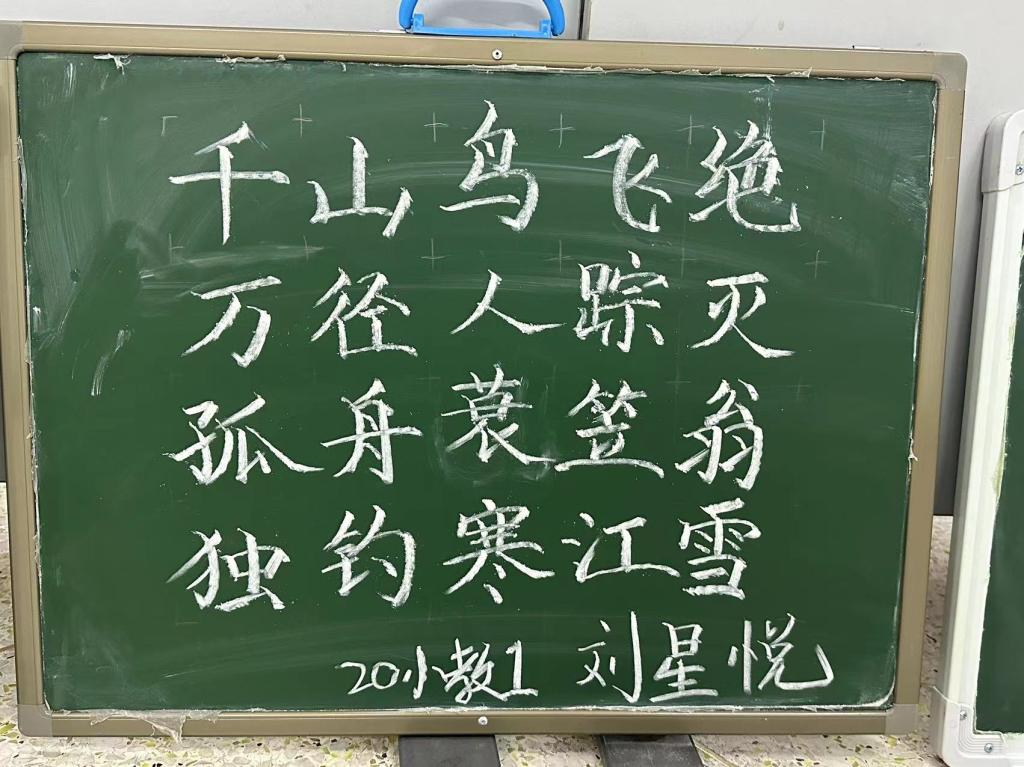 千山鸟飞绝
万径人踪灭
孤舟蓑笠翁
独钓寒江雪
20小教1 刘星悦